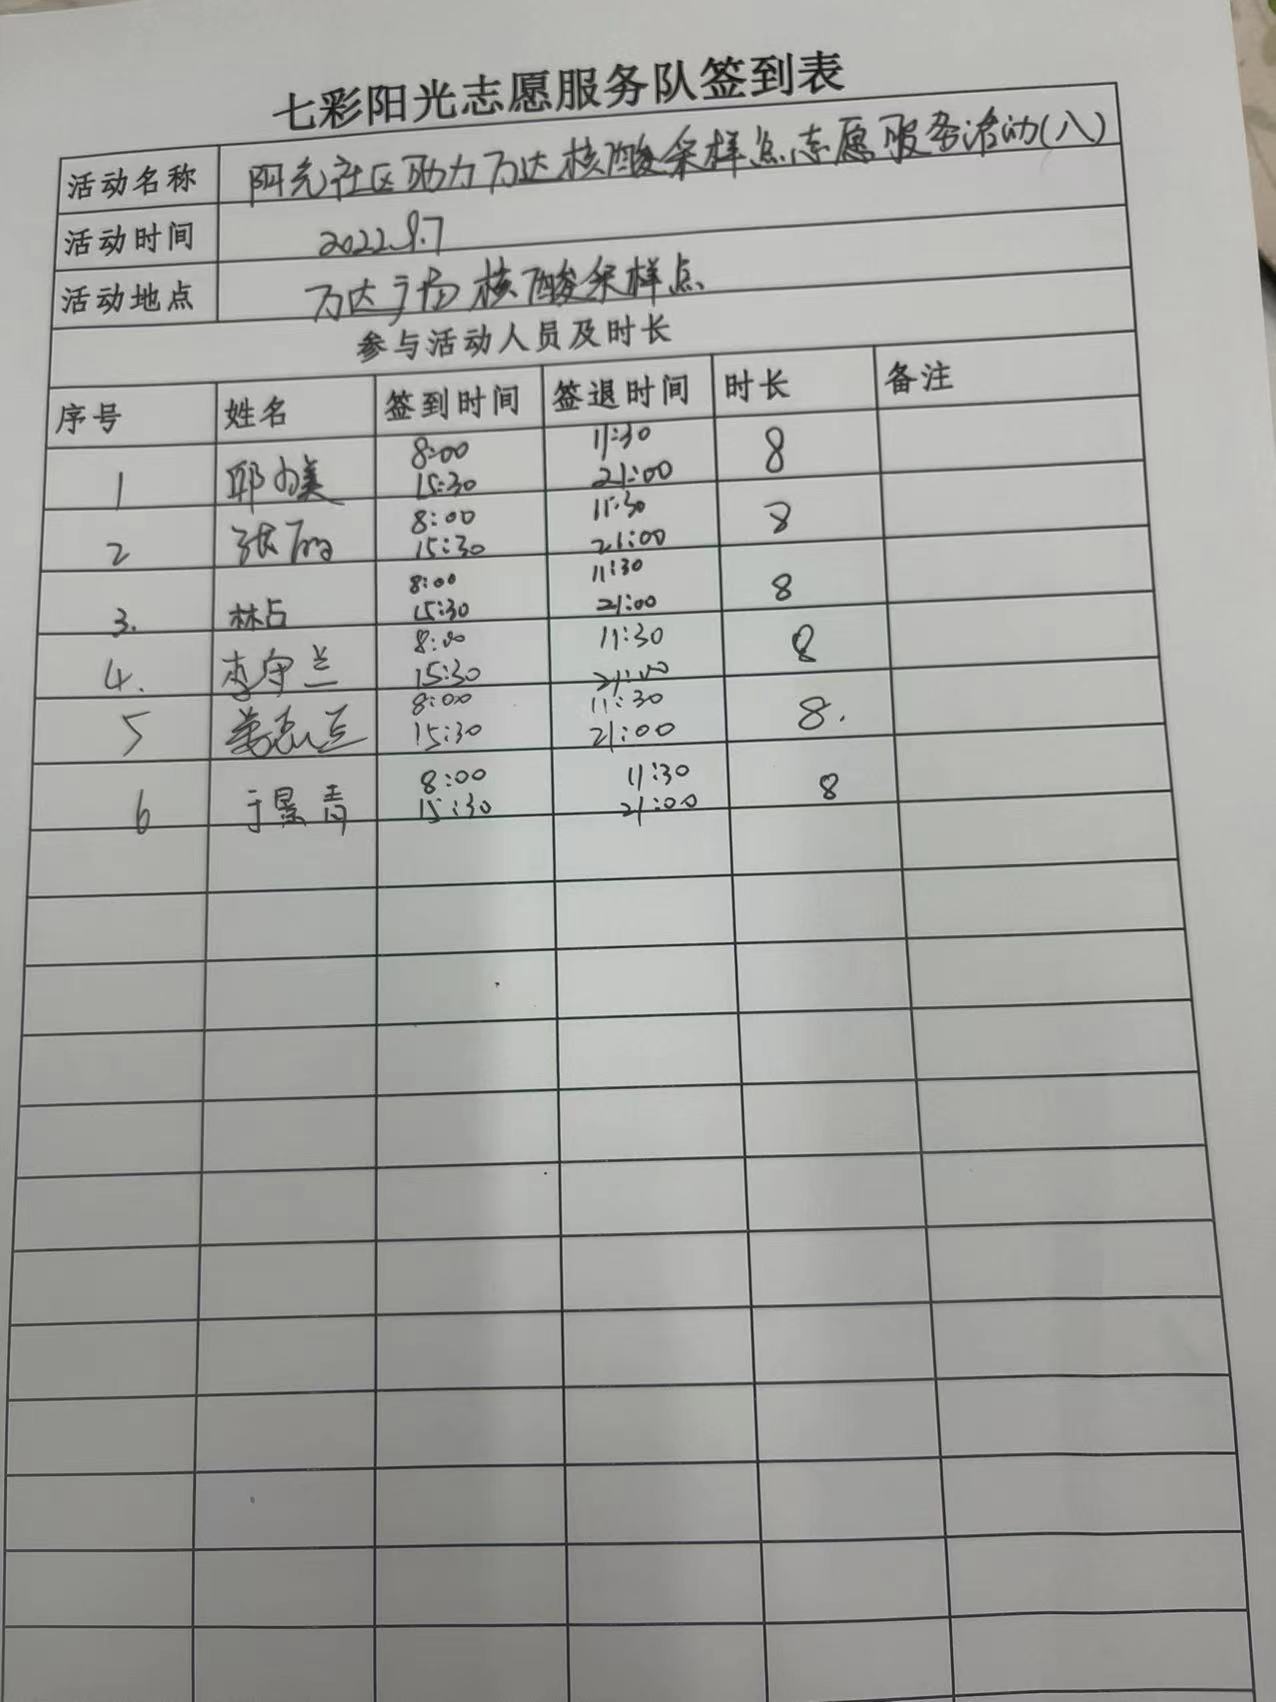 七彩阳光志愿服务队签到表
活动名称 阳光社区助力万达核酸采样点志愿服务活动(八)
活动时间 2022.9.7
活动地点 万达广场核酸采样点
参与活动人员及时长
序号 姓名 签到时间 签退时间 时长 备注
8:00 11:30
1 15:30 21:00 8
8:00 11:30
2 张丽 15:30 21:00 8
8:00 11:30
3. 林占 15:30 21:00 8
8:00 11:30
4. 李守兰 15:30 21:00 8
8:00 11:30
5 15:30 21:00 8.
8:00 11:30
6 于景青 15:30 21:00 8